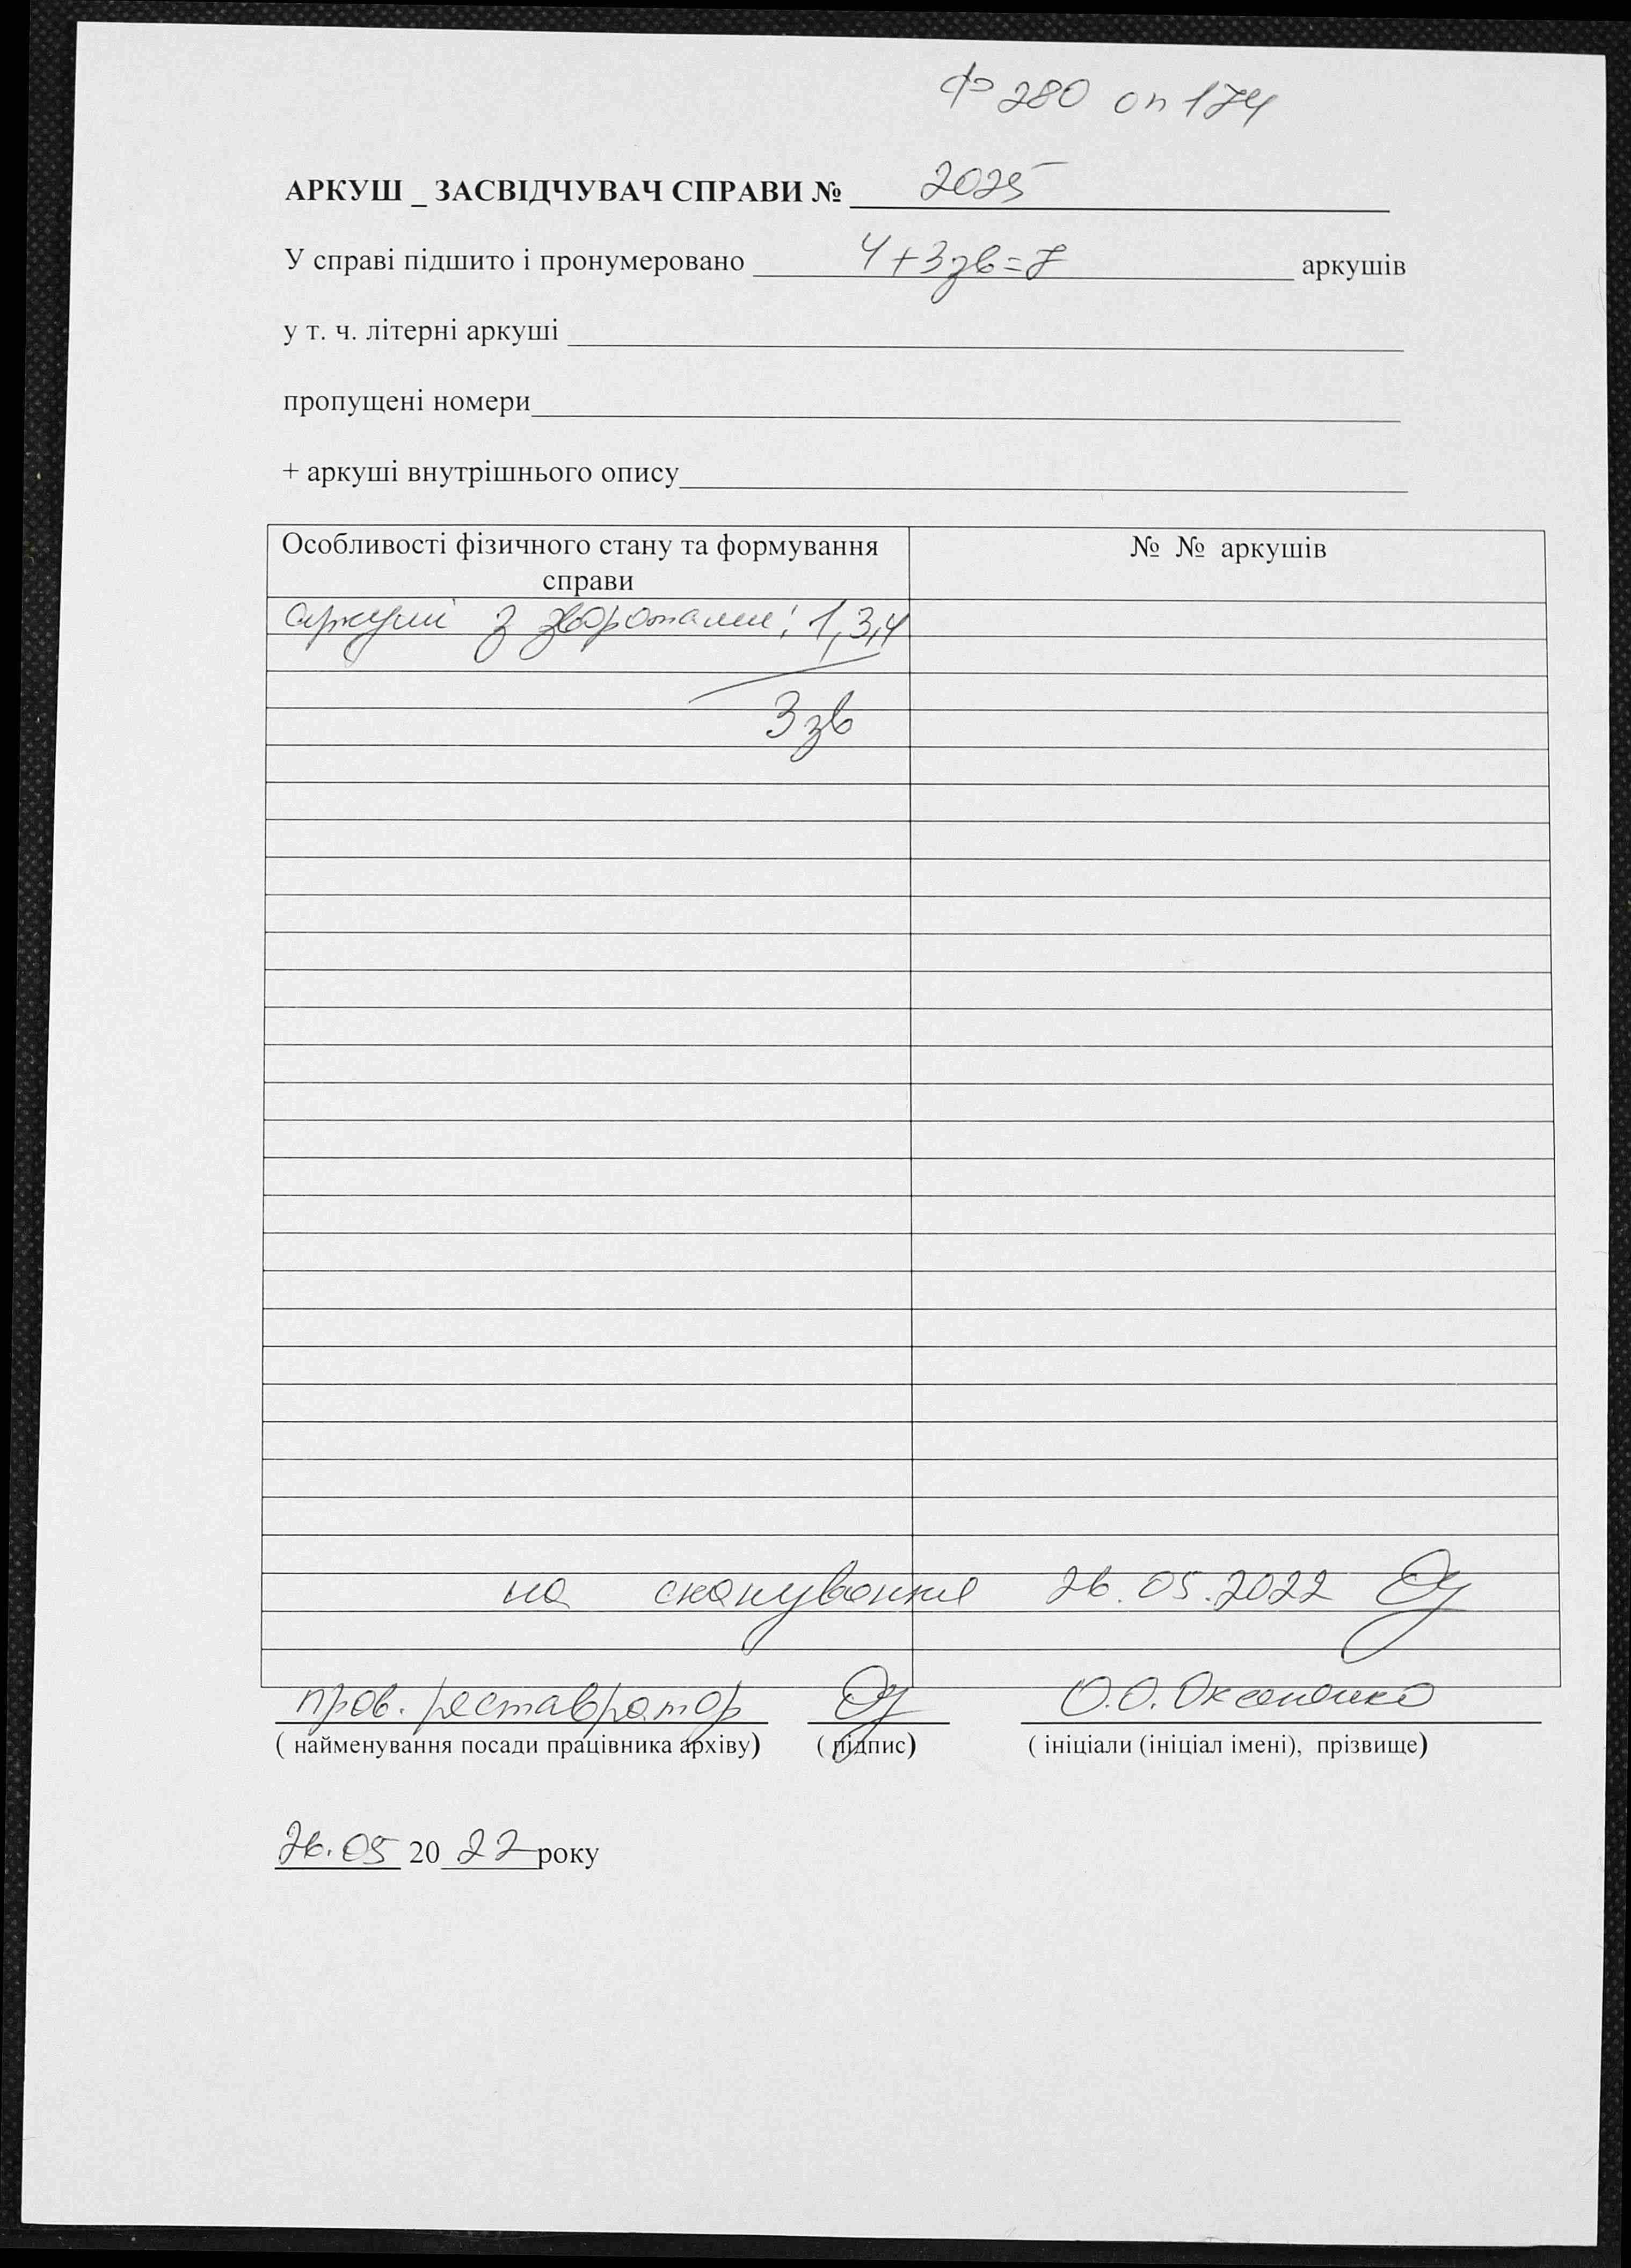 Ф 280 оп 174
АРКУШ _ ЗАСВІДЧУВАЧ СПРАВИ № 2025
У справі підшито і пронумеровано 4+3зв=7 аркушів
у т. ч. літерні аркуші
пропущені номери
+ аркуші внутрішнього опису
Особливості фізичного стану та формування справи № № аркушів
аркуші з зворотами: 1,3,4
3зв
на сканування 26.05.2022
пров. реставратор О.О. Оксененко
( найменування посади працівника архіву) ( підпис) ( ініціали (ініціал імені), прізвище)
26.05 2022 року